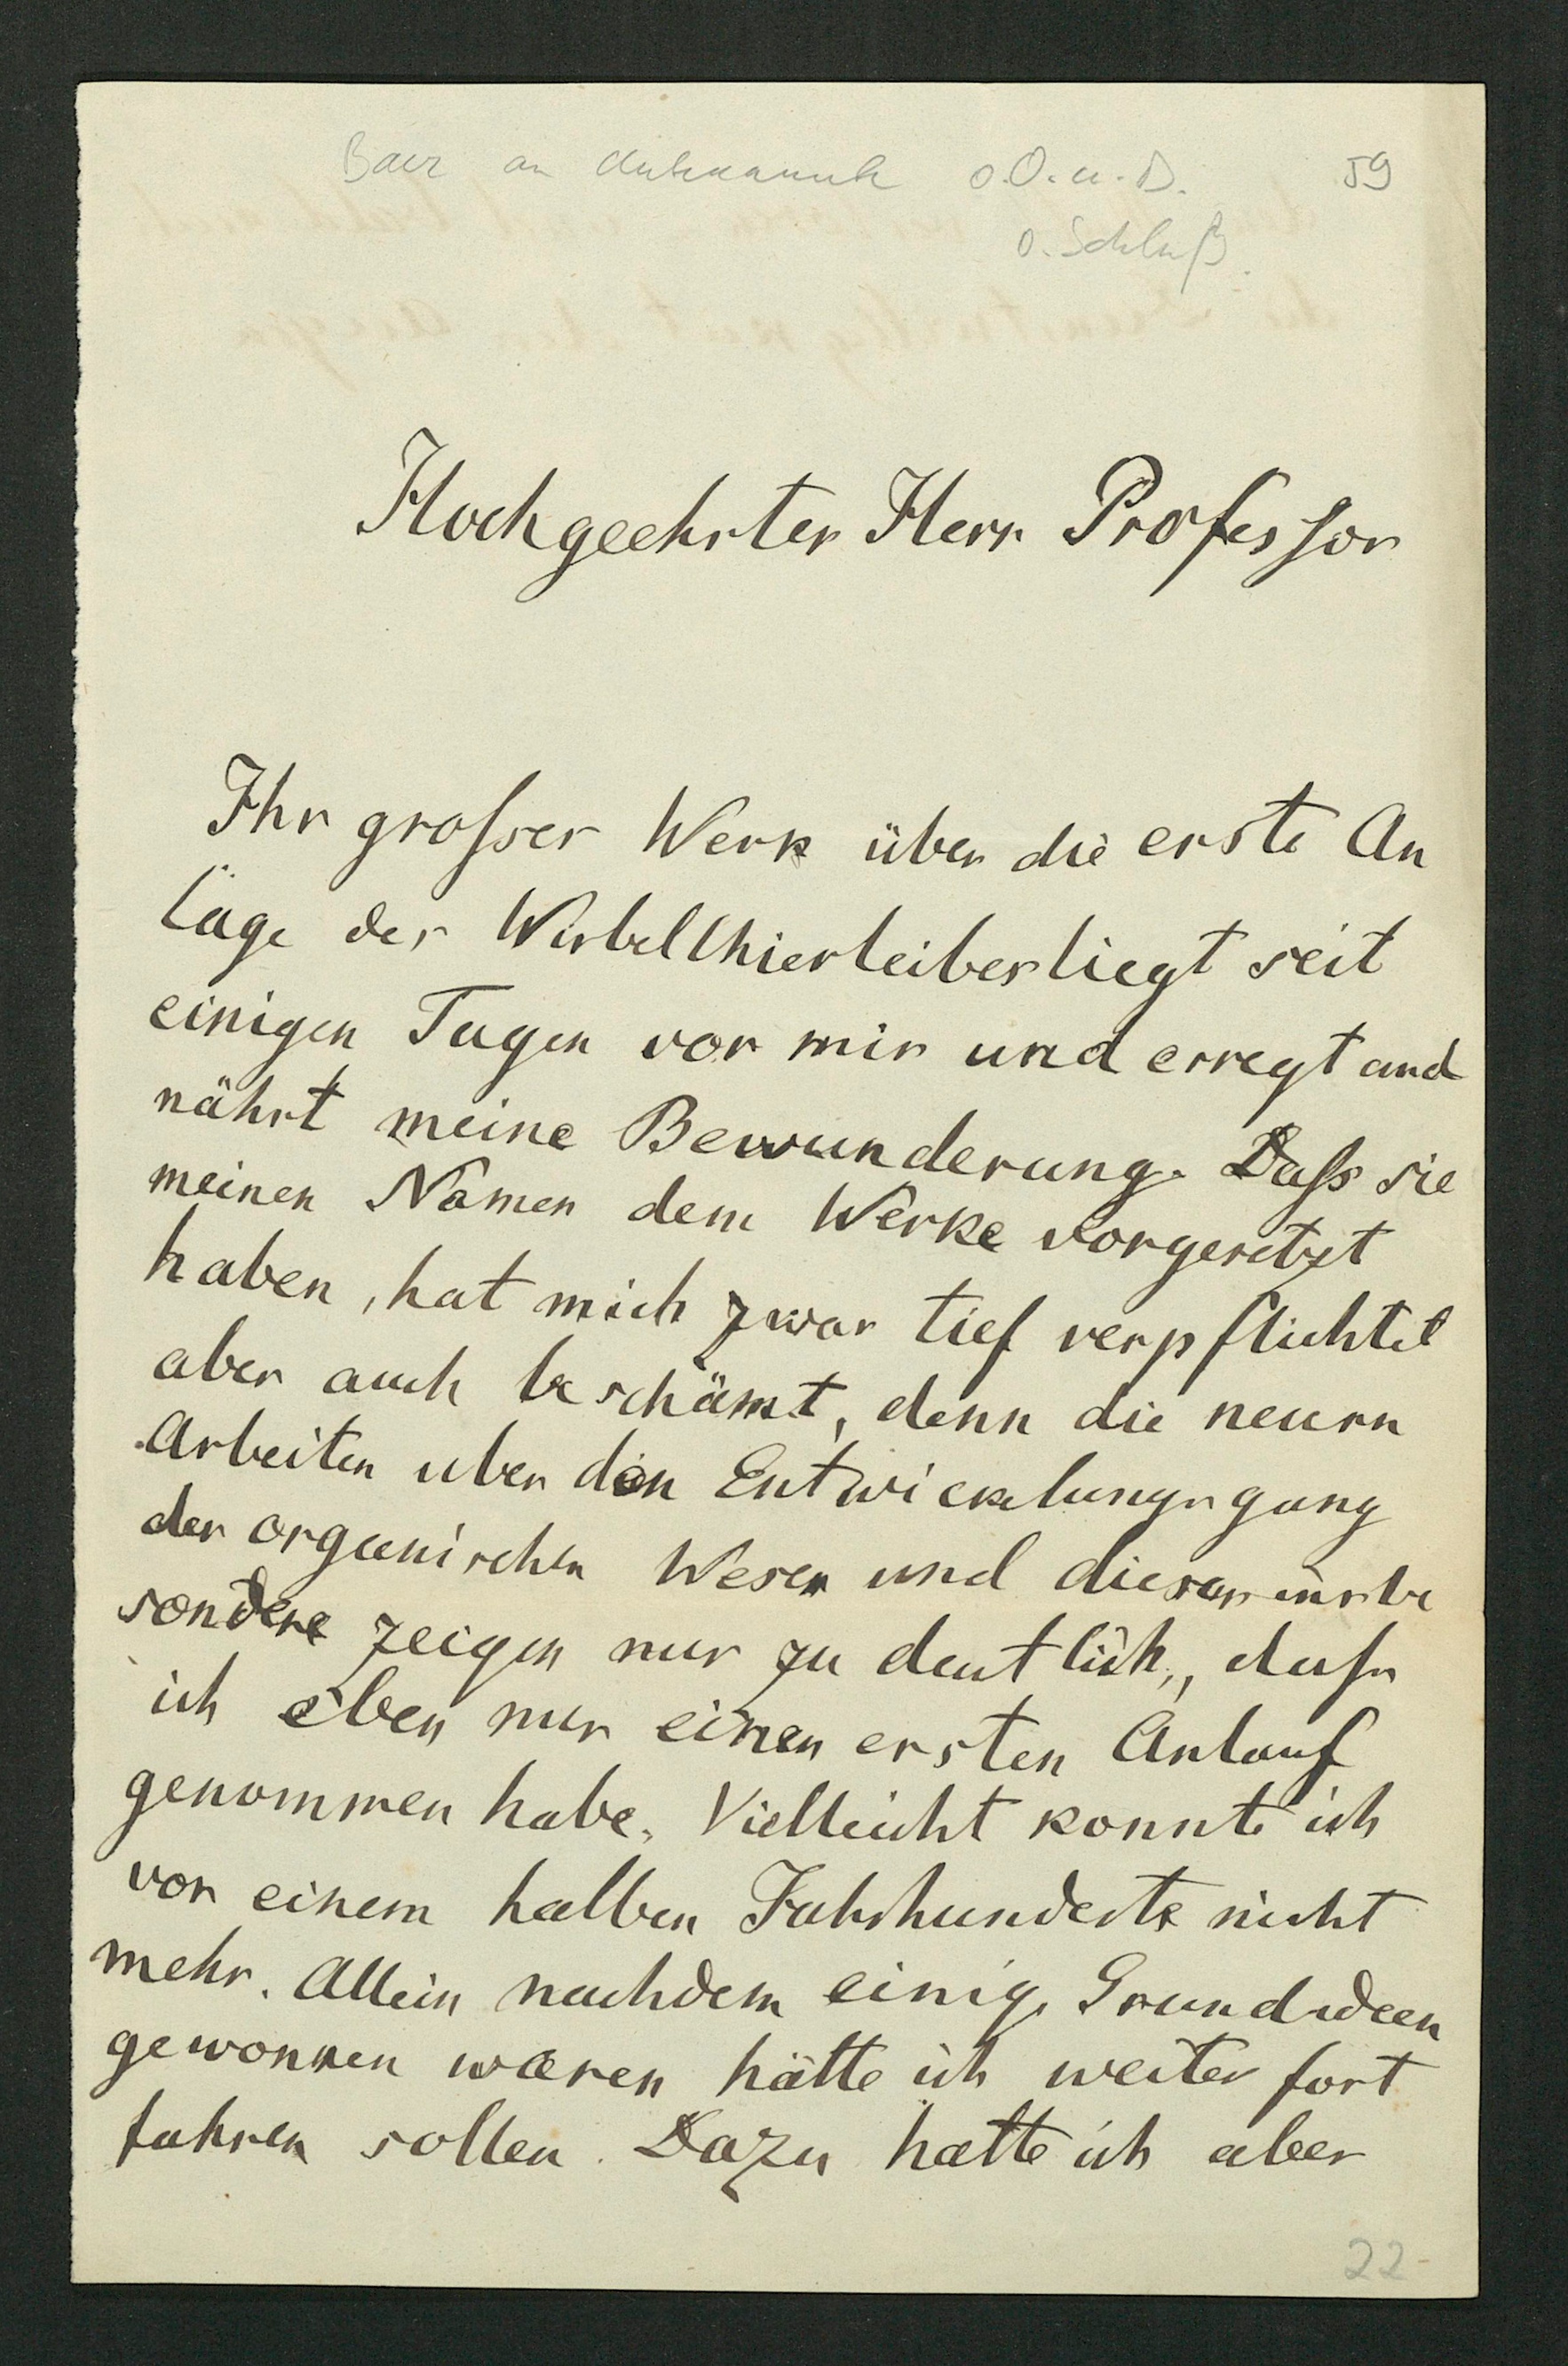 Baer an Unbekannt o.O.u.D. 59
o. Schluß.
Hochgeehrter Herr Professor
Ihr grosses Werk über die erste An
lage des Wirbelthierleibes liegt seit
einigen Tagen vor mir und erregt und
nährt meine Bewunderung. Dass sie
meinen Namen dem Werke vorgesetzt
haben, hat mich zwar tief verpflichtet
aber auch beschämt, denn die neuern
Arbeiten uber den Entwickelungsgang
der organischen Wesen und dieses insbe
sondere zeigen nur zu deutlich, dass
ich eben nur einen ersten Anlauf
genommen habe. Vielleicht konnte ich
vor einem halben Jahrhunderte nicht
mehr. Allein nachdem einige Grundideen
gewonnen waren hätte ich weiter fort
fahren sollen. Dazu hatte ich aber
22-